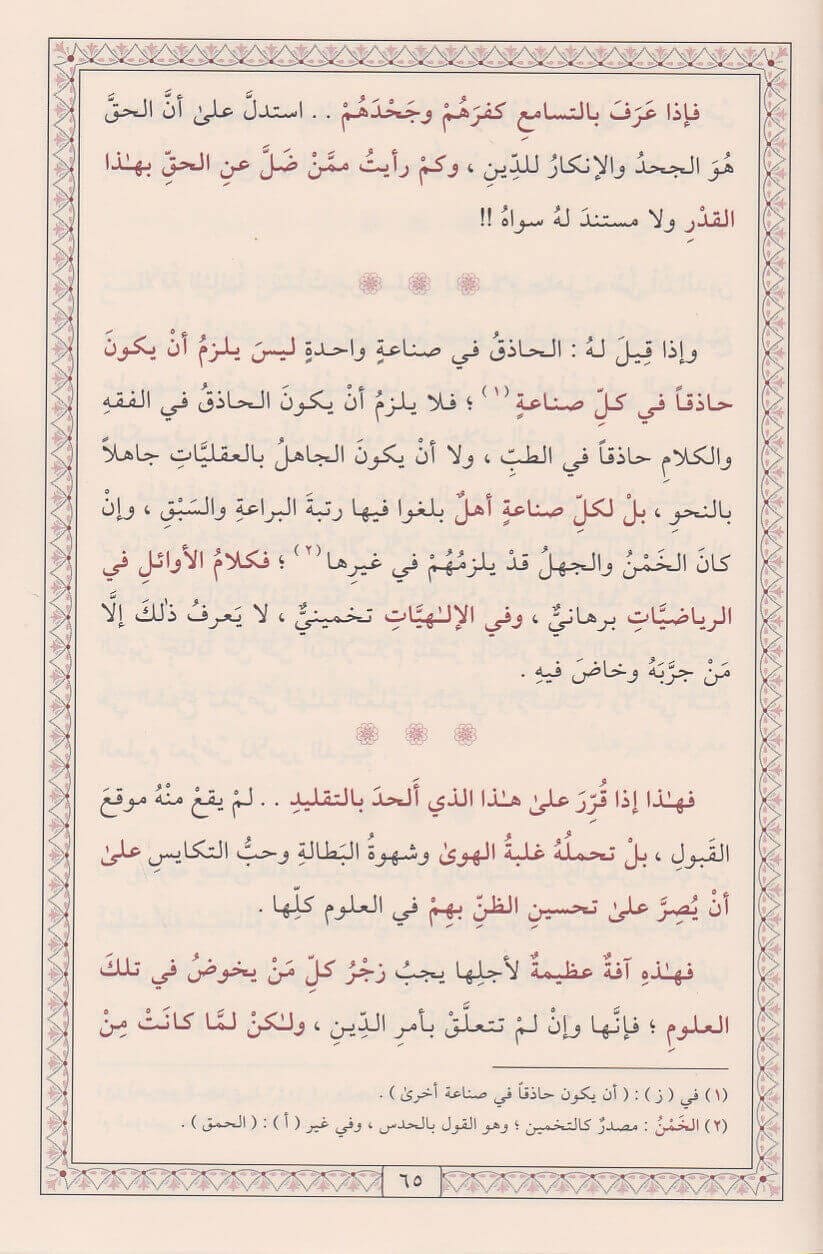 فإذا عَرَفَ بالتسامعِ كفرَهُمْ وجَحْدَهُمْ .. استدلَّ على أنَّ الحقَّ
هُوَ الجحدُ والإنكارُ للدِّينِ ، وكمْ رأيتُ ممَّنْ ضَلَّ عنِ الحقِّ بهٰذا
القدْرِ ولا مستندَ لهُ سواهُ !!
وإذا قِيلَ لهُ : الحاذقُ في صناعةٍ واحدةٍ ليسَ يلزمُ أنْ يكونَ
حاذقاً في كلِّ صناعةٍ (١) ؛ فلا يلزمُ أنْ يكونَ الحاذقُ في الفقهِ
والكلامِ حاذقاً في الطبِّ ، ولا أنْ يكونَ الجاهلُ بالعقليَّاتِ جاهلاً
بالنحوِ ، بلْ لكلِّ صناعةٍ أهلٌ بلغوا فيها رتبةَ البراعةِ والسَبْقِ ، وإنْ
كانَ الخَمْنُ والجهلُ قدْ يلزمُهُمْ في غيرِها (٢) ؛ فكلامُ الأوائلِ في
الرياضيَّاتِ برهانيٌّ ، وفي الإلٰهيَّاتِ تخمينيٌّ ، لا يَعرفُ ذلكَ إلَّا
مَنْ جرَّبَهُ وخاضَ فيهِ .
فهٰذا إذا قُرِّرَ علىٰ هٰذا الذي ألحدَ بالتقليدِ .. لمْ يقعْ منْهُ موقعَ
القَبولِ ، بلْ تحملُهُ غلبةُ الهوىٰ وشهوةُ البَطالةِ وحبُّ التكايسِ علىٰ
أنْ يُصِرَّ علىٰ تحسينِ الظنِّ بهِمْ في العلوم كلِّها .
فهٰذهِ آفةٌ عظيمةٌ لأجلِها يجبُ زجْرُ كلِّ مَنْ يخوضُ في تلكَ
العلومِ ؛ فإنَّها وإنْ لمْ تتعلَّقْ بأمرِ الدِّينِ ، ولٰكنْ لمَّا كانَتْ مِنْ
(١) في ( ز ) : ( أن يكون حاذقاً في صناعة أخرىٰ ) .
(٢) الخَمْنُ : مصدرٌ كالتخمين ؛ وهو القول بالحدس ، وفي غير ( أ ) : ( الحمق ) .
٦٥